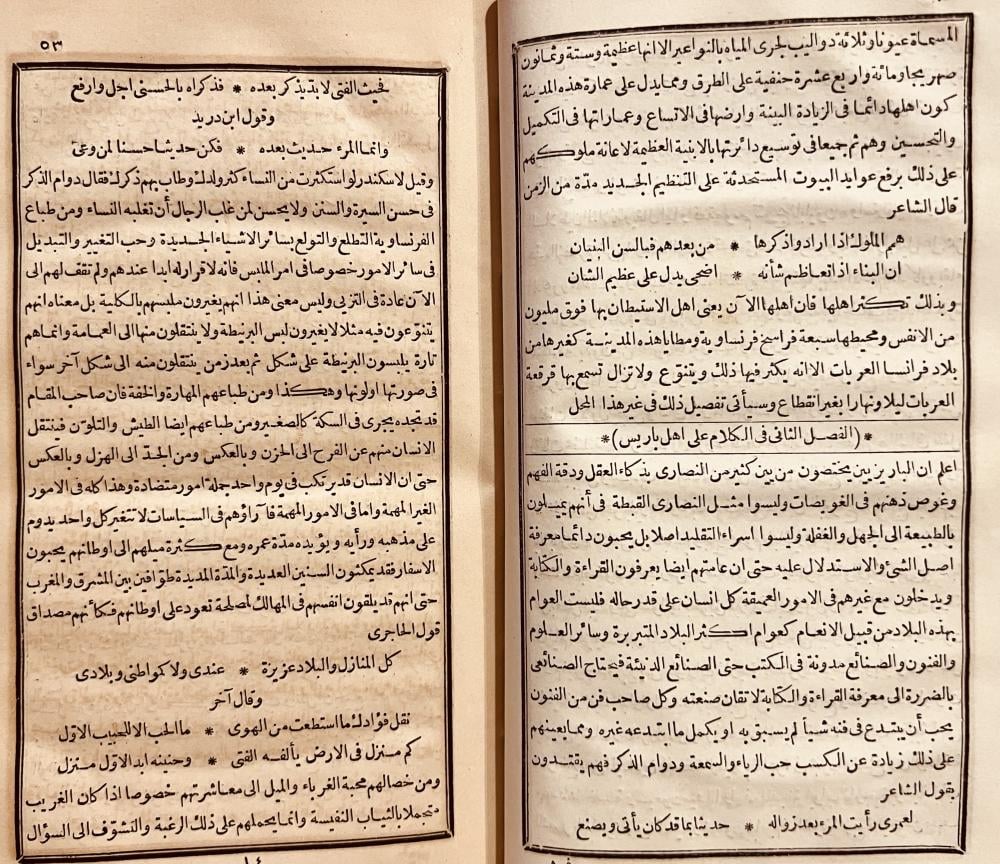 المسماة عيونا وثلاثة دواليب لجرى المياه بالنواعير الا انها عظيمة وستة وثمانون
صهريجا ومائة واربع عشرة حنفية على الطرق ومما يدل على عمارة هذه المدينة
كون اهلها دائما فى الزيادة البينة وارضها فى الاتساع وعماراتها فى التكميل
والتحسين وهم ثم جميعا فى توسيع دائرتها بالابنية العظيمة لاعانة ملوكهم
على ذلك برفع عوايد البيوت المستحدثة على التنظيم الجديد مدة من الزمن
قال الشاعر
همم الملوك اذا ارادوا ذكرها * من بعدهم فبالسن البنيان
ان البناء اذا تعاظم شأنه * اضحى يدل على عظيم الشان
وبذلك تكثر اهلها فان اهلها الآن يعنى اهل الاستيطان بها فوق مليون
من الانفس ومحيطها سبعة فراسخ فرنساوية ومطايا هذه المدينة كغيرها من
بلاد فرانسا العربات الا انه يكثر فيها ذلك ويتنوع ولا تزال تسمع بها قرقعة
العربات ليلا ونهارا بغير انقطاع وسيأتى تفصيل ذلك فى غير هذا المحل
*(الفصل الثانى فى الكلام على اهل باريس)*
اعلم ان الباريزيين يختصون من بين كثير من النصارى بذكاء العقل ودقة الفهم
وغوص ذهنهم فى الغويصات وليسوا مثل النصارى القبطة فى أنهم يميلون
بالطبيعة الى الجهل والغفلة وليسوا اسراء التقليد اصلا بل يحبون دائما معرفة
اصل الشئ والاستدلال عليه حتى ان عامتهم ايضا يعرفون القراءة والكتابة
ويدخلون مع غيرهم فى الامور العميقة كل انسان على قدر حاله فليست العوام
بهذه البلاد من قبيل الانعام كعوام اكثر البلاد المتبربرة وسائر العلوم
والفنون والصنائع مدونة فى الكتب حتى الصنائع الدنيئة فيحتاج الصنائعى
بالضررة الى معرفة القراءة والكتابة لاتقان صنعته وكل صاحب فن من الفنون
يحب أن يبتدع فى فنه شيأ لم يسبق به او يكمل ما ابتدعه غيره ومما يعينهم
على ذلك زيادة عن الكسب حب الرياء والسمعة ودوام الذكر فهم يقتدون
بقول الشاعر
لعمرى رأيت المرء بعد زواله * حديثا بما قد كان يأتى ويصنع
٥٣
فحيث الفتى لابد يذكر بعده * فذكراه بالحسنى اجل وارفع
وقول ابن دريد
وانما المرء حديث بعده * فكن حديثا حسنا لمن وعى
وقيل لاسكندر لو استكثرت من النساء كثر ولدك وطاب بهم ذكرك فقال دوام الذكر
فى حسن السيرة والسنن ولا يحسن لمن غلب الرجال أن تغلبه النساء ومن طباع
الفرنساوية التطلع والتولع بسائر الاشياء الجديدة وحب التغيير والتبديل
فى سائر الامور خصوصا فى امر الملبس فانه لا قرار له ابدا عندهم ولم تقف لهم الى
الآن عادة فى التزيى وليس معنى هذا انهم يغيرون ملبسهم بالكلية بل معناه انهم
يتنوعون فيه مثلا لا يغيرون لبس البرنيطة ولا ينتقلون منها الى العمامة وانما هم
تارة يلبسون البرنيطة على شكل ثم بعد زمن ينتقلون منه الى شكل آخر سواء
فى صورتها او لونها وهكذا ومن طباعهم المهارة والخفة فان صاحب المقام
قد تجده يجرى فى السكة كالصغير ومن طباعهم ايضا الطيش والتلون فينتقل
الانسان منهم عن الفرح الى الحزن وبالعكس ومن الجد الى الهزل وبالعكس
حتى ان الانسان قد يرتكب فى يوم واحد جملة امور متضادة وهذا كله فى الامور
الغير المهمة واما فى الامور المهمة فآراؤهم فى السياسات لا تتغير كل واحد يدوم
على مذهبه ورأيه ويؤيده مدة عمره ومع كثرة ميلهم الى اوطانهم يحبون
الاسفار فقد يمكثون السنين العديدة والمدة المديدة طوافين بين المشرق والمغرب
حتى انهم قد يلقون انفسهم فى المهالك لمصلحة تعود على اوطانهم فكأنهم مصداق
قول الحاجرى
كل المنازل والبلاد عزيزة * عندى ولا كمواطنى وبلادى
وقال آخر
نقل فؤادك ما استطعت من الهوى * ما الحب الا للحبيب الاول
كم منزل فى الارض يألفه الفتى * وحنينه ابدا لاول منزل
ومن خصالهم محبة الغرباء والميل الى معاشرتهم خصوصا اذا كان الغريب
متجملا بالثياب النفيسة وانما يحملهم على ذلك الرغبة والتشوف الى السؤال